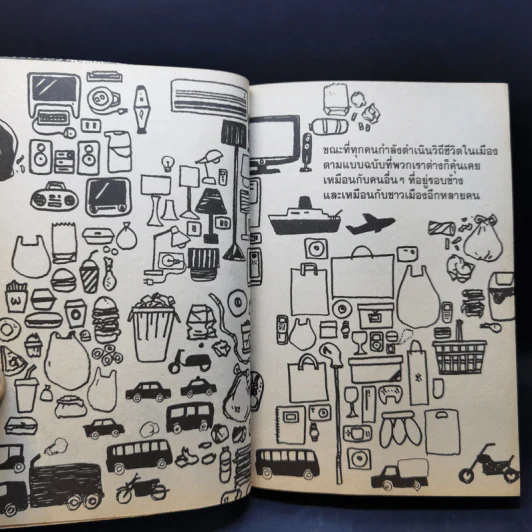 ขณะที่ทุกคนกำลังดำเนินวิถีชีวิตในเมือง
ตามแบบฉบับที่พวกเราต่างก็คุ้นเคย
เหมือนกับคนอื่นๆ ที่อยู่รอบข้าง
และเหมือนกับชาวเมืองอีกหลายคน